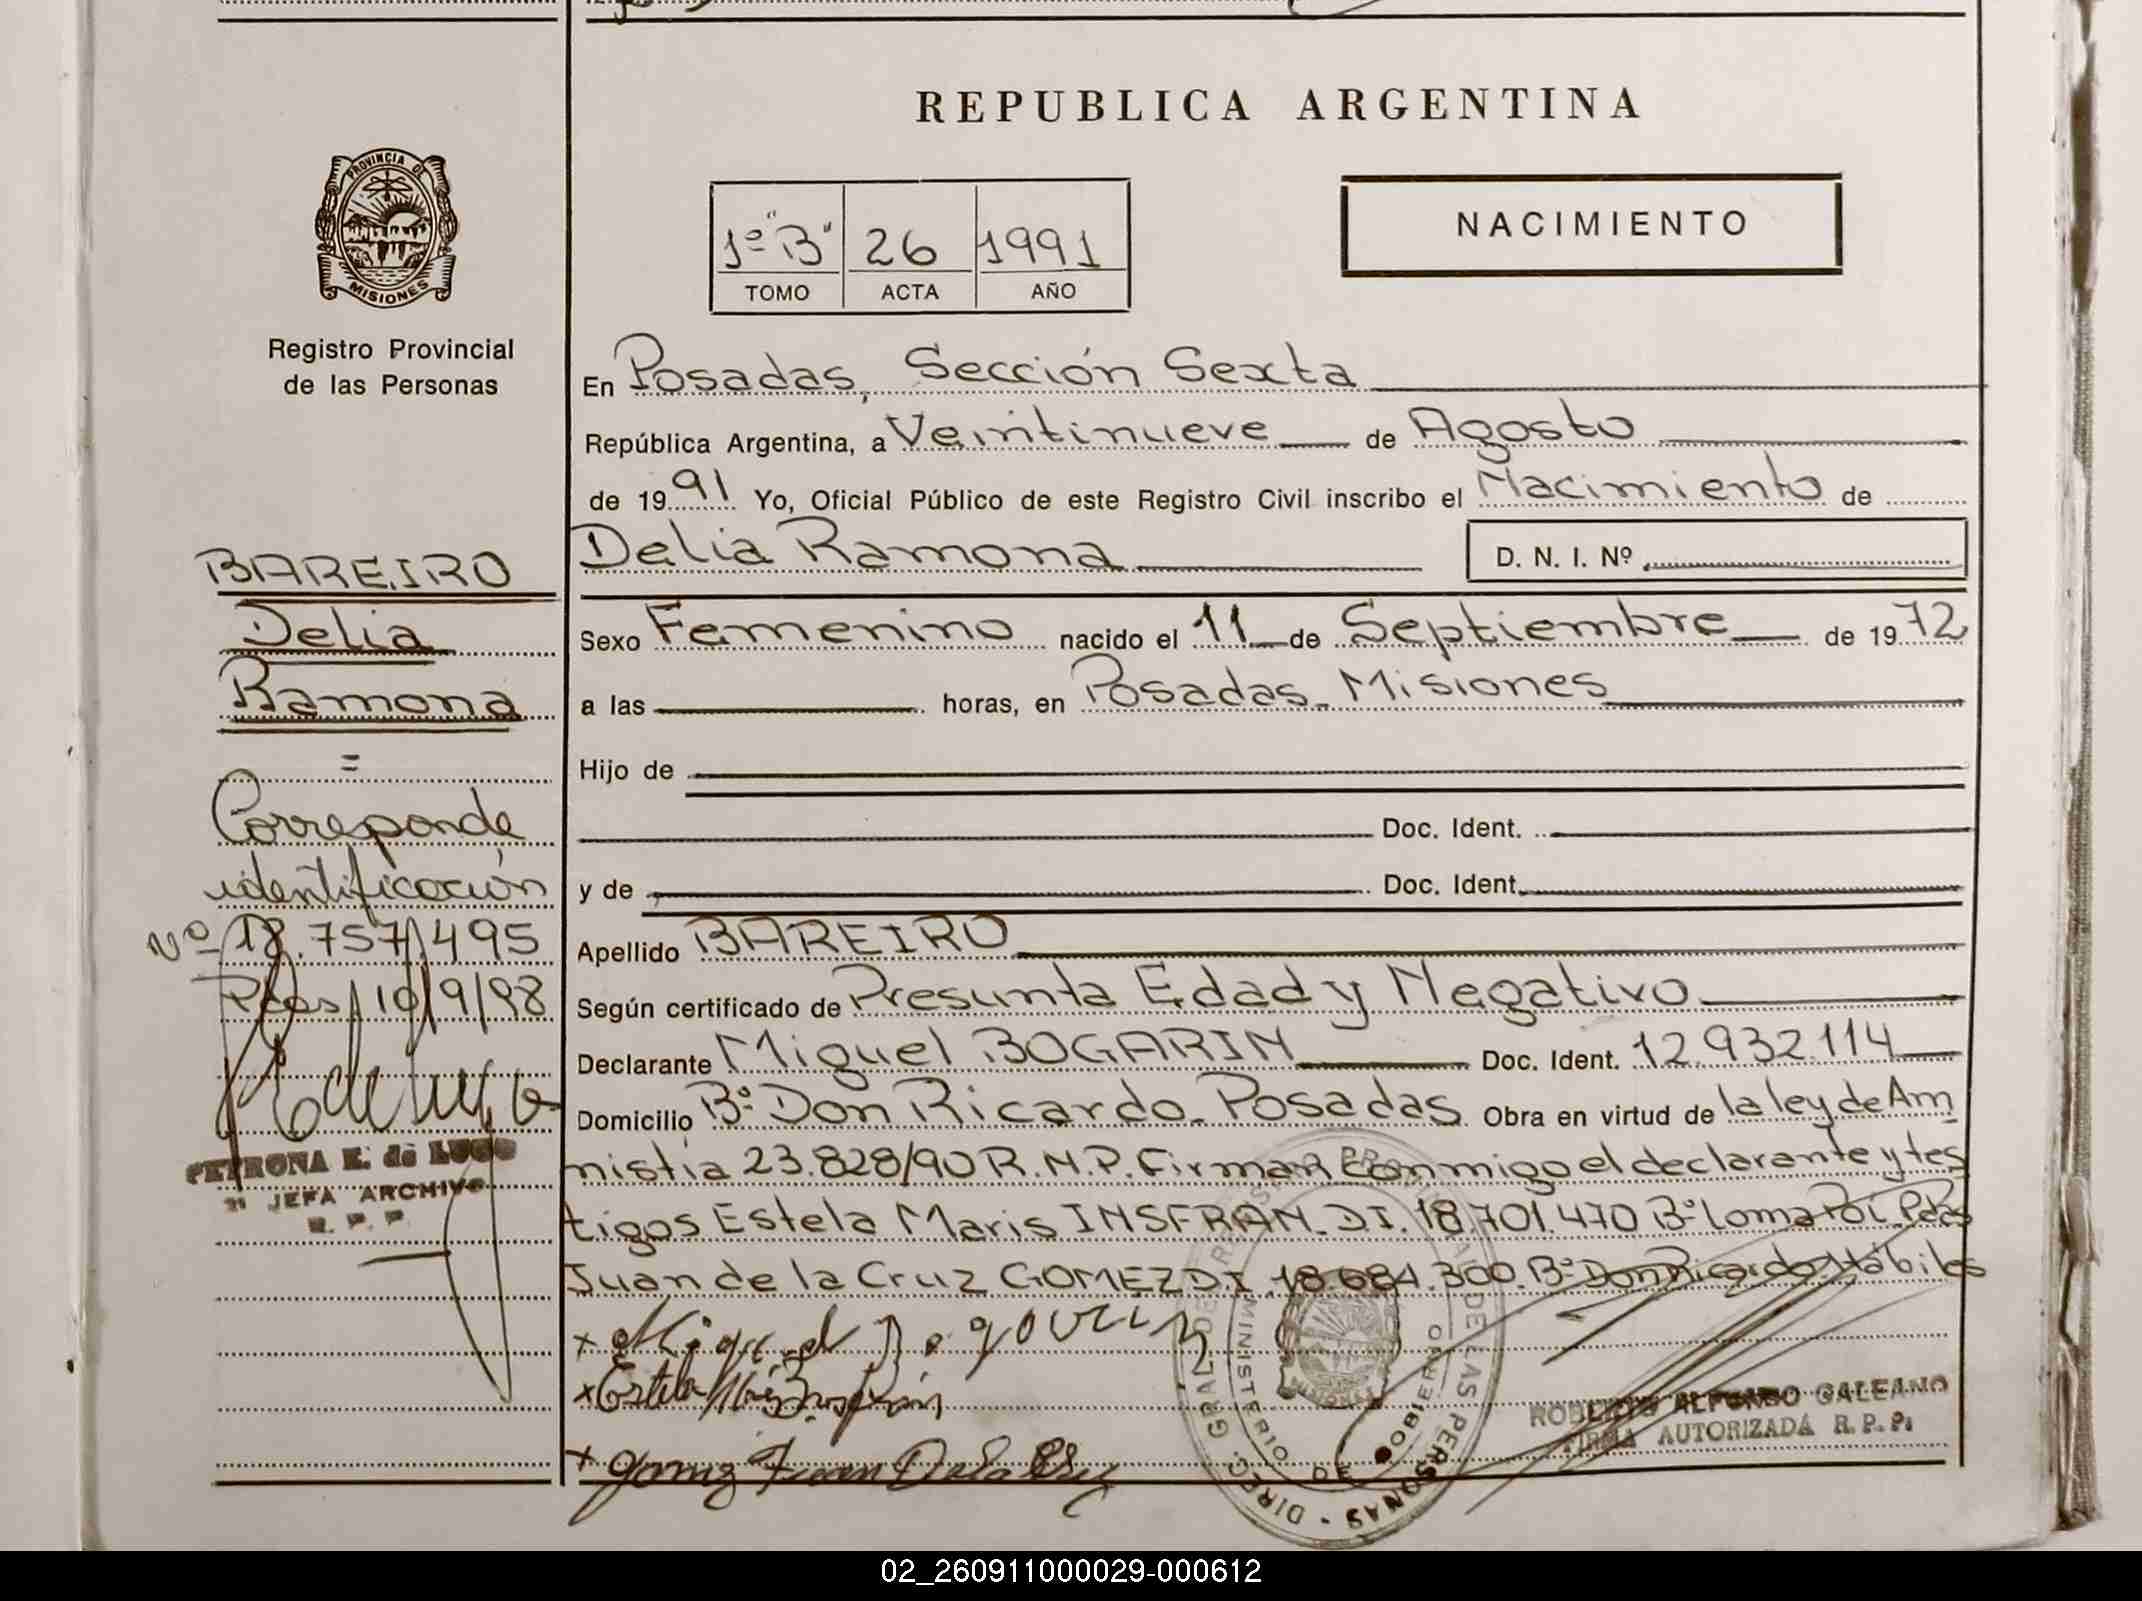 REPUBLICA ARGENTINA
PROVINCIA DE MISIONES
Registro Provincial
de las Personas
1º "B" 26 1991
TOMO ACTA AÑO
NACIMIENTO
En Posadas, Sección Sexta
República Argentina, a Veintinueve de Agosto
de 1991 Yo, Oficial Público de este Registro Civil inscribo el Nacimiento de
Delia Ramona D. N. I. Nº
Sexo Femenino nacido el 11 de Septiembre de 1972
a las horas, en Posadas. Misiones
Hijo de
Doc. Ident.
y de Doc. Ident.
Apellido BAREIRO
Según certificado de Presunta Edad y Negativo
Declarante Miguel BOGARIN Doc. Ident. 12.932.114
Domicilio Bº Don Ricardo. Posadas Obra en virtud de la ley de Am
nistia 23.828/90 R.N.P. Firman conmigo el declarante y tes
tigos Estela Maris INSFRAN. DI. 18.701.470 Bº Loma Poi. Pdas
Juan de la Cruz GOMEZ D.I. 18.684.300. Bº Don Ricardo Hábiles
x Miguel Bogarin
x Estela
x Gomez Juan De la Cruz
ROBERTO ALFONSO GALEANO
FIRMA AUTORIZADA R. P. P.
DIREC. GRAL. DE REGISTRO PROVINCIAL DE LAS PERSONAS
MINISTERIO DE GOBIERNO
BAREIRO
Delia
Ramona
=
Corresponde
identificación
Nº 18.757.495
Pdas 10/9/98
PETRONA E. de LUGO
JEFA ARCHIVO
R. P. P.
02_260911000029-000612